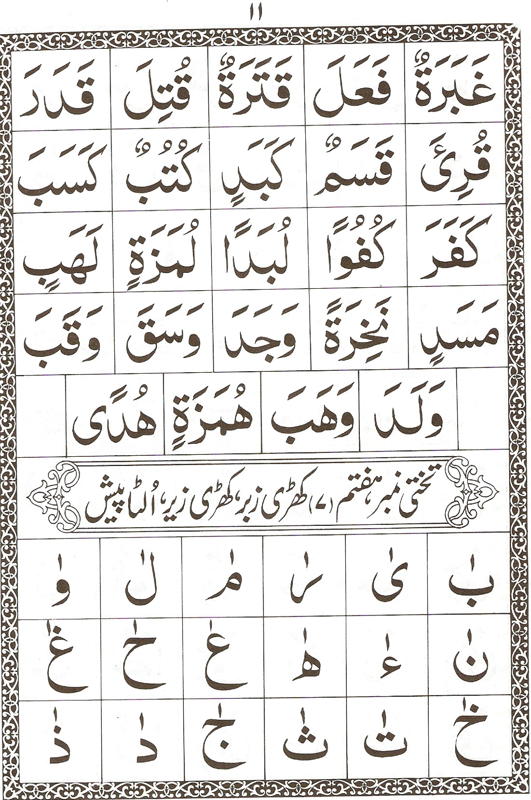 ۱۱
غَبَرَةٌ فَعَلَ قَتَرَةٌ قُتِلَ قَدَرَ
قُرِئَ قَسَمٌ كَبَدٍ كُتُبٌ كَسَبَ
كَفَرَ كُفُوًا لُبَدًا لُمَزَةٍ لَهَبٍ
مَسَدٍ نَخِرَةً وَجَدَ وَسَقَ وَقَبَ
وَلَدَ وَهَبَ هُمَزَةٍ هُدًى
تختی نمبر ہفتم (۷) کھڑی زبر، کھڑی زیر، اُلٹا پیش
بٰ یٰ رٰ مٰ لٰ وٰ
نٰ ءٰ هٰ عٰ حٰ غٰ
خٰ تٰ ثٰ جٰ دٰ ذٰ